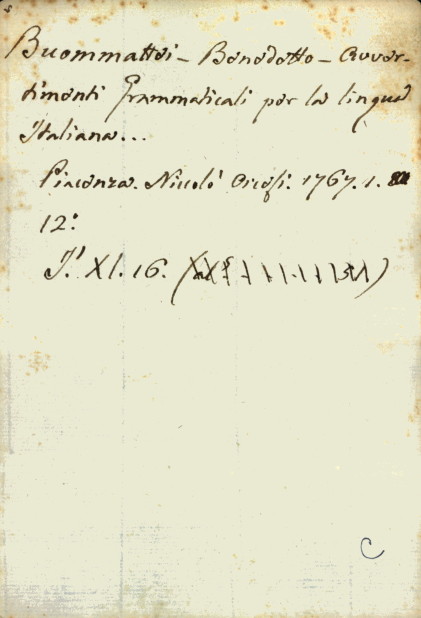 Buommattei - Benedetto - Avver-
timenti Grammaticali per la lingua
Italiana...
Piacenza. Niccolò Orcesi. 1767. 1.
12:
J.' XI. 16.
C